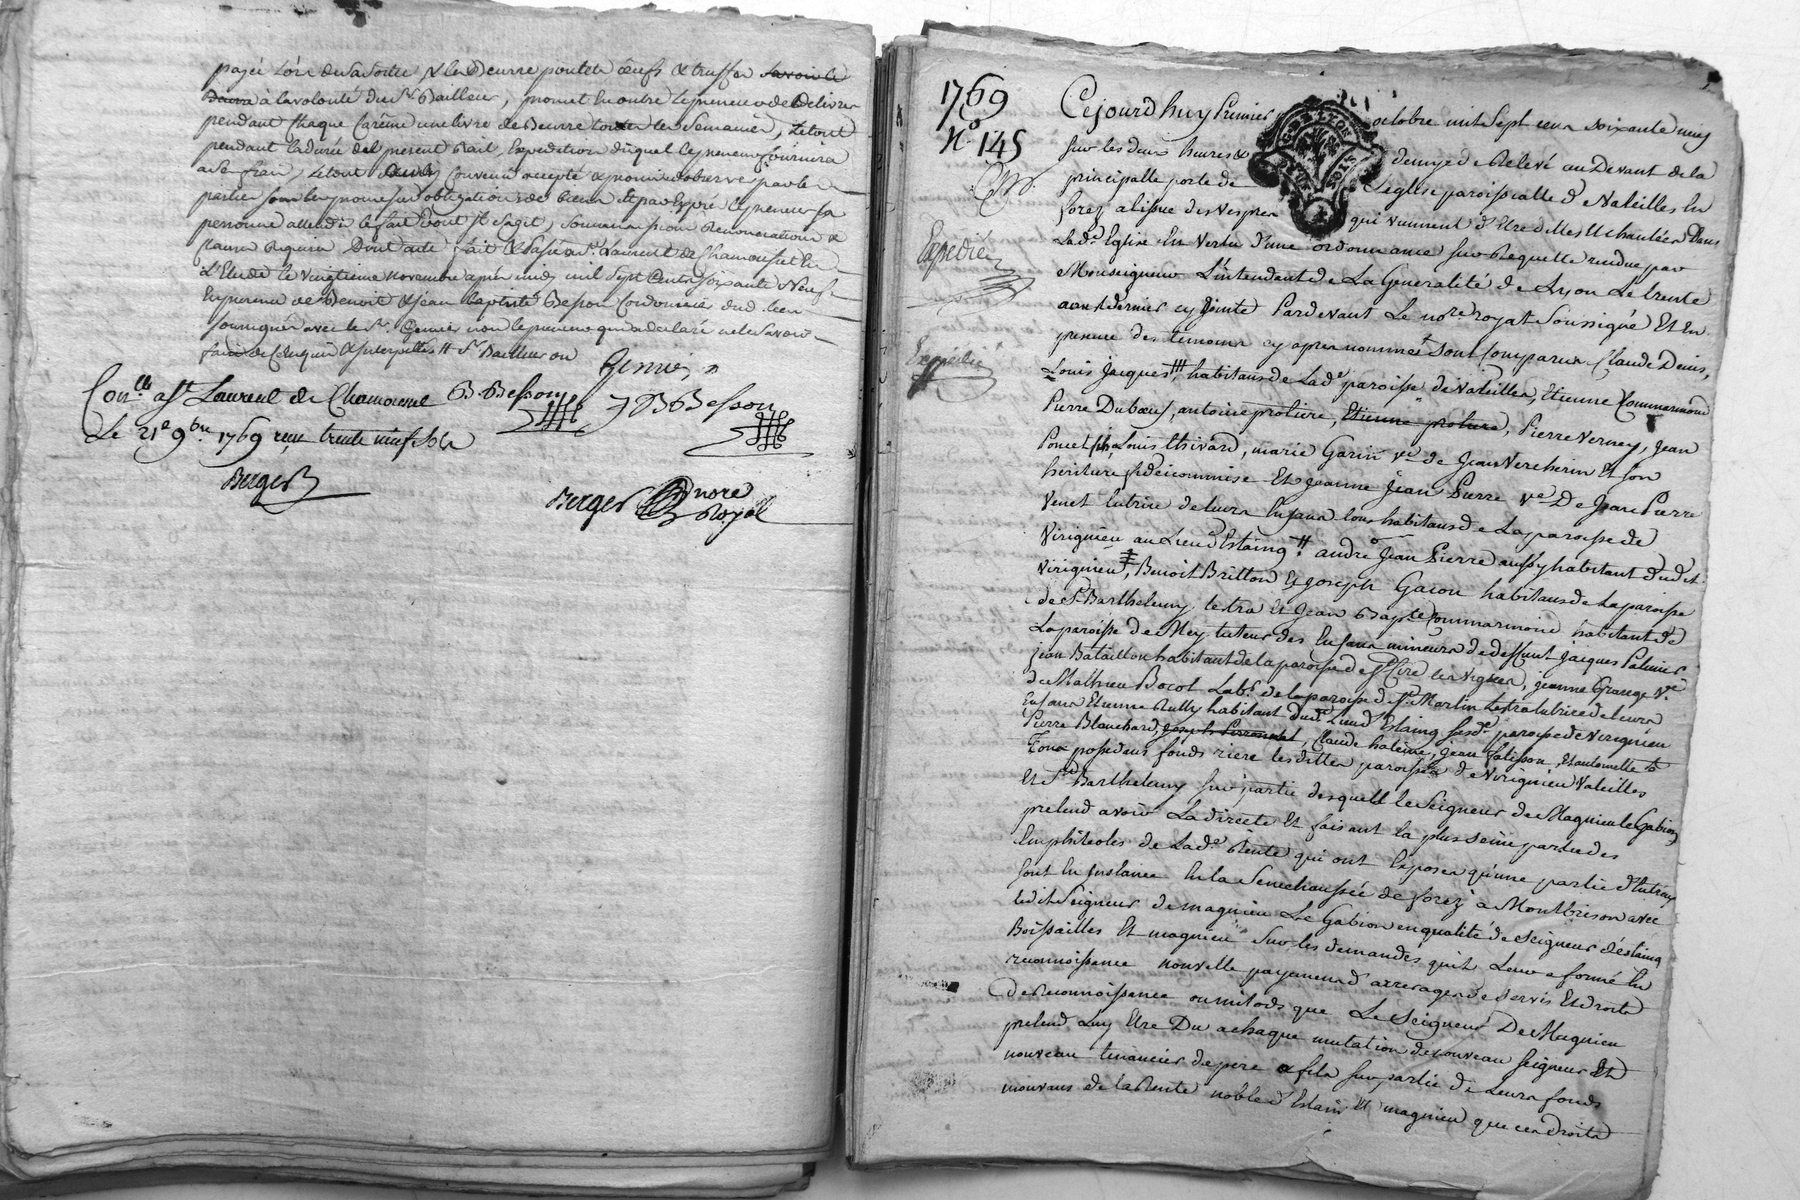 payée lors de sa sortie & les Beurre poulets œufs & truffes savoir le
Beurre à la volonté du Sr Bailleur, promet en outre le preneur de delivrer
pendant chaque Carême une livre de Beurre toutes les Semaines, Le tout
pendant la durée du present Bail, Expedition duquel le preneur fournira
a Ses frais, Le tout convenu accepté & promis observer par les
parties sous les promesses obligations de biens Et par Exprés le preneur sa
personne attendu le fait dont Il s'agit, soumissions Renonciations &
clauses Requises Dont acte fait & Passé a St Laurent de Chamousset En
L'Etude le vingtieme novembre apres midy mil Sept Cents soixante Neuf
En presence de Benoit & Jean Baptiste Besson Cordonniers dud. lieu
soussignés avec le Sr. Genie non le preneur qui a declaré ne le Savoir
faire de ce Enquis & Interpellés # Sr Bailleur
Genie
Con.lle aSt Laurent de Chamousset B. Besson J B Besson
Le 21e 9bre 1769 reçu trente neuf sols
Berger
Berger nore Royal
1769
No 145
Expediée
Expediée
Cejourd'huy Premier octobre mil Sept cens soixante neuf
sur les deux heures & demye de Relevé au Devant de la
principalle porte de Leglise paroissialle de Valeilles En
forez a lissue des Vespres qui viennent d'Etre dittes Et chantées Dans
Lade Eglise En Vertu d'une ordonnance sur Requette rendue par
Monseigneur L'intendant de La Generalité de Lyon Le trente
aoust dernier cy Jointe Pardevant Le nore royal Soussigné Et En
presence des temoins cy apres nommés Sont Comparus Claude Denis,
Louis Jacquet, habitans de Lade paroisse de Valeilles, Etienne Commarmond
Pierre Duboeuf, antoine proliere, Etienne proliere, Pierre Verney, Jean
Poncet, Louis thivard, marie Garin Ve de Jean Vercherin Et son
heritiere fideicommise Et Jeanne Jean Pierre Ve De Jean Pierre
Venet tutrice de leurs Enfans tous habitans de La paroisse de
Virigneu au Lieu d'Estaing # andré Jean Pierre aussy habitant dudit
Virigneu, Benoit Britton Et Joseph Gacon habitans de La paroisse
de St Barthelemy Lestra Et Jean Bapte Commarmond habitant de
La paroisse de Mey tuteur des Enfans mineurs de deffunt Jacques Palmier
jean Bataillon habitant de la paroisse de St Cire les vignes, jeanne Grange Ve
de Mathieu Bocot Labr de la paroisse de St Martin Lestra tutrice de leurs
Enfans Etienne Rully habitant dudt Lieu d'Estaing susde paroisse de Virigneu
Pierre Blanchard, Claude haleine, Jean Jalisson, Et antoinette
Tous possedans fonds riere lesdittes paroisses de Virigneu Valeilles
Et St Barthelemy sur partie desquels le Seigneur de Magnieu le Gabion
pretend avoir La directe Et faisant la plus seine partie des
Emphiteotes de Lade Rente qui ont Exposés qu'une partie d'Entreux
sont En Instance En la Senechaussée de forez a Montbrison avec
ledit Seigneur de magnieu Le Gabion en qualité de Seigneur d'Estaing
Boissailles Et magnieu sur les demandes qu'il Leur a formé En
reconnoissance nouvelle payement d'arrerages de servis Et droits
de Reconnoissance ou milods que Le Seigneur De Magnieu
pretend Luy Etre Du a chaque mutation de nouveau Seigneur Et
nouveau tenancier de pere a fils sur partie de Leurs fonds
mouvans de la Rente noble d'Estaing Et magnieu que ces Droits